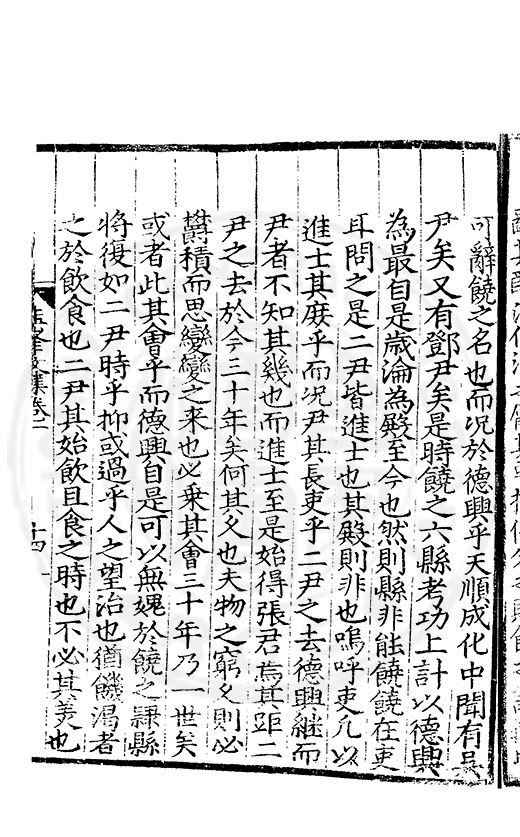 可辭饒之名也而况於德興乎天順成化中聞有吳
尹矣又有鄧尹矣是時饒之六縣考功上計以德興
為最自是歲淪為殿至今也然則縣非能饒饒在吏
耳問之是二尹皆進士也其殿則非也嗚呼吏凡以
進士其庶乎而况尹其長吏乎二尹之去德興繼而
尹者不知其幾也而進士至是始得張君焉其距二
尹之去於今三十年矣何其久也夫物之窮久則必
欝積而思變變之來也必乗其會三十年乃一世矣
或者此其會乎而德興自是可以無媿於饒之隷縣
將復如二尹時乎抑或過乎人之望治也猶饑渴者
之於飲食也二尹其始飲且食之時也不必其美也
集卷二
十四